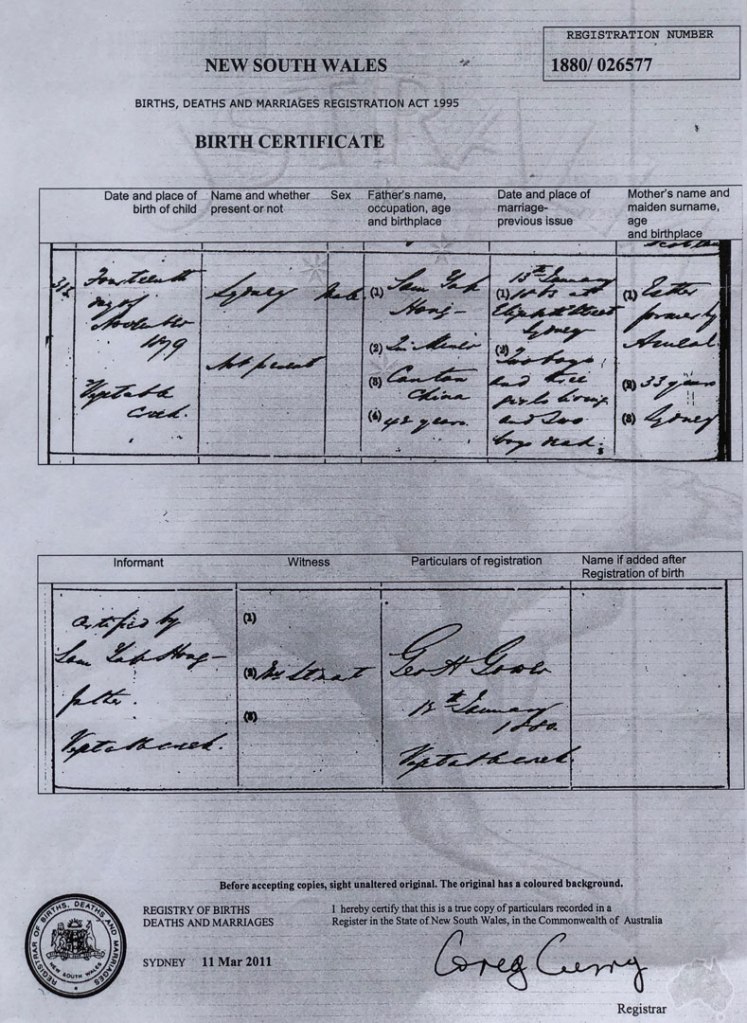 REGISTRATION NUMBER
1880/ 026577
NEW SOUTH WALES
BIRTHS, DEATHS AND MARRIAGES REGISTRATION ACT 1995
BIRTH CERTIFICATE
Date and place of birth of child
Name and whether present or not
Sex
Father's name, occupation, age and birthplace
Date and place of marriage- previous issue
Mother's name and maiden surname, age and birthplace
Fourteenth
day of
November
1879
Vegetable
Creek.
Sydney
Not present
Male
(1) Sam Yak
Hong
(2) Tin Miner
(3) Canton
China
(4) 42 years
13th January
(1)
at
Elizabeth Street
Sydney
(2)
Two boys
and three
girls living
and two
boys dead
(1) Esther
formerly
(2) 33 years
(3) Sydney
Informant
Witness
Particulars of registration
Name if added after Registration of birth
Certified by
Sam Yak Hong
father.
Vegetable creek.
(1)
(2) Mrs Stuart
(3)
Geo H Gower
13th January
1880.
Vegetable creek
Before accepting copies, sight unaltered original. The original has a coloured background.
REGISTRY OF BIRTHS
DEATHS AND MARRIAGES
SYDNEY 11 Mar 2011
I hereby certify that this is a true copy of particulars recorded in a
Register in the State of New South Wales, in the Commonwealth of Australia
Greg Curry
Registrar
REGISTRAR OF BIRTHS, DEATHS AND MARRIAGES
NEW SOUTH WALES